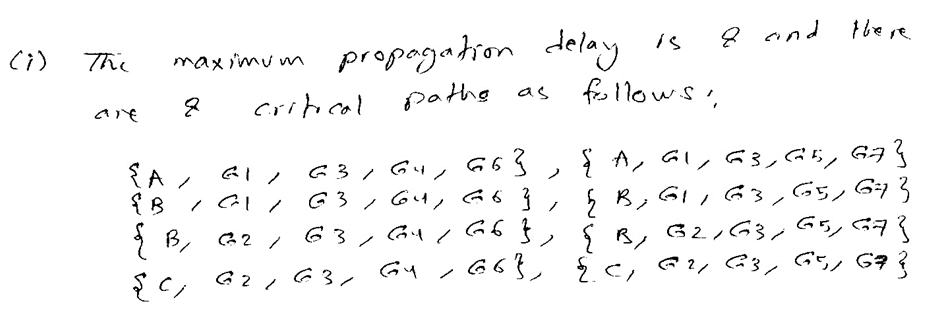 (i) The maximum propagation delay is 8 and there
are 8 critical paths as follows:
{A, G1, G3, G4, G6}, {A, G1, G3, G5, G7}
{B, G1, G3, G4, G6}, {B, G1, G3, G5, G7}
{B, G2, G3, G4, G6}, {B, G2, G3, G5, G7}
{C, G2, G3, G4, G6}, {C, G2, G3, G5, G7}